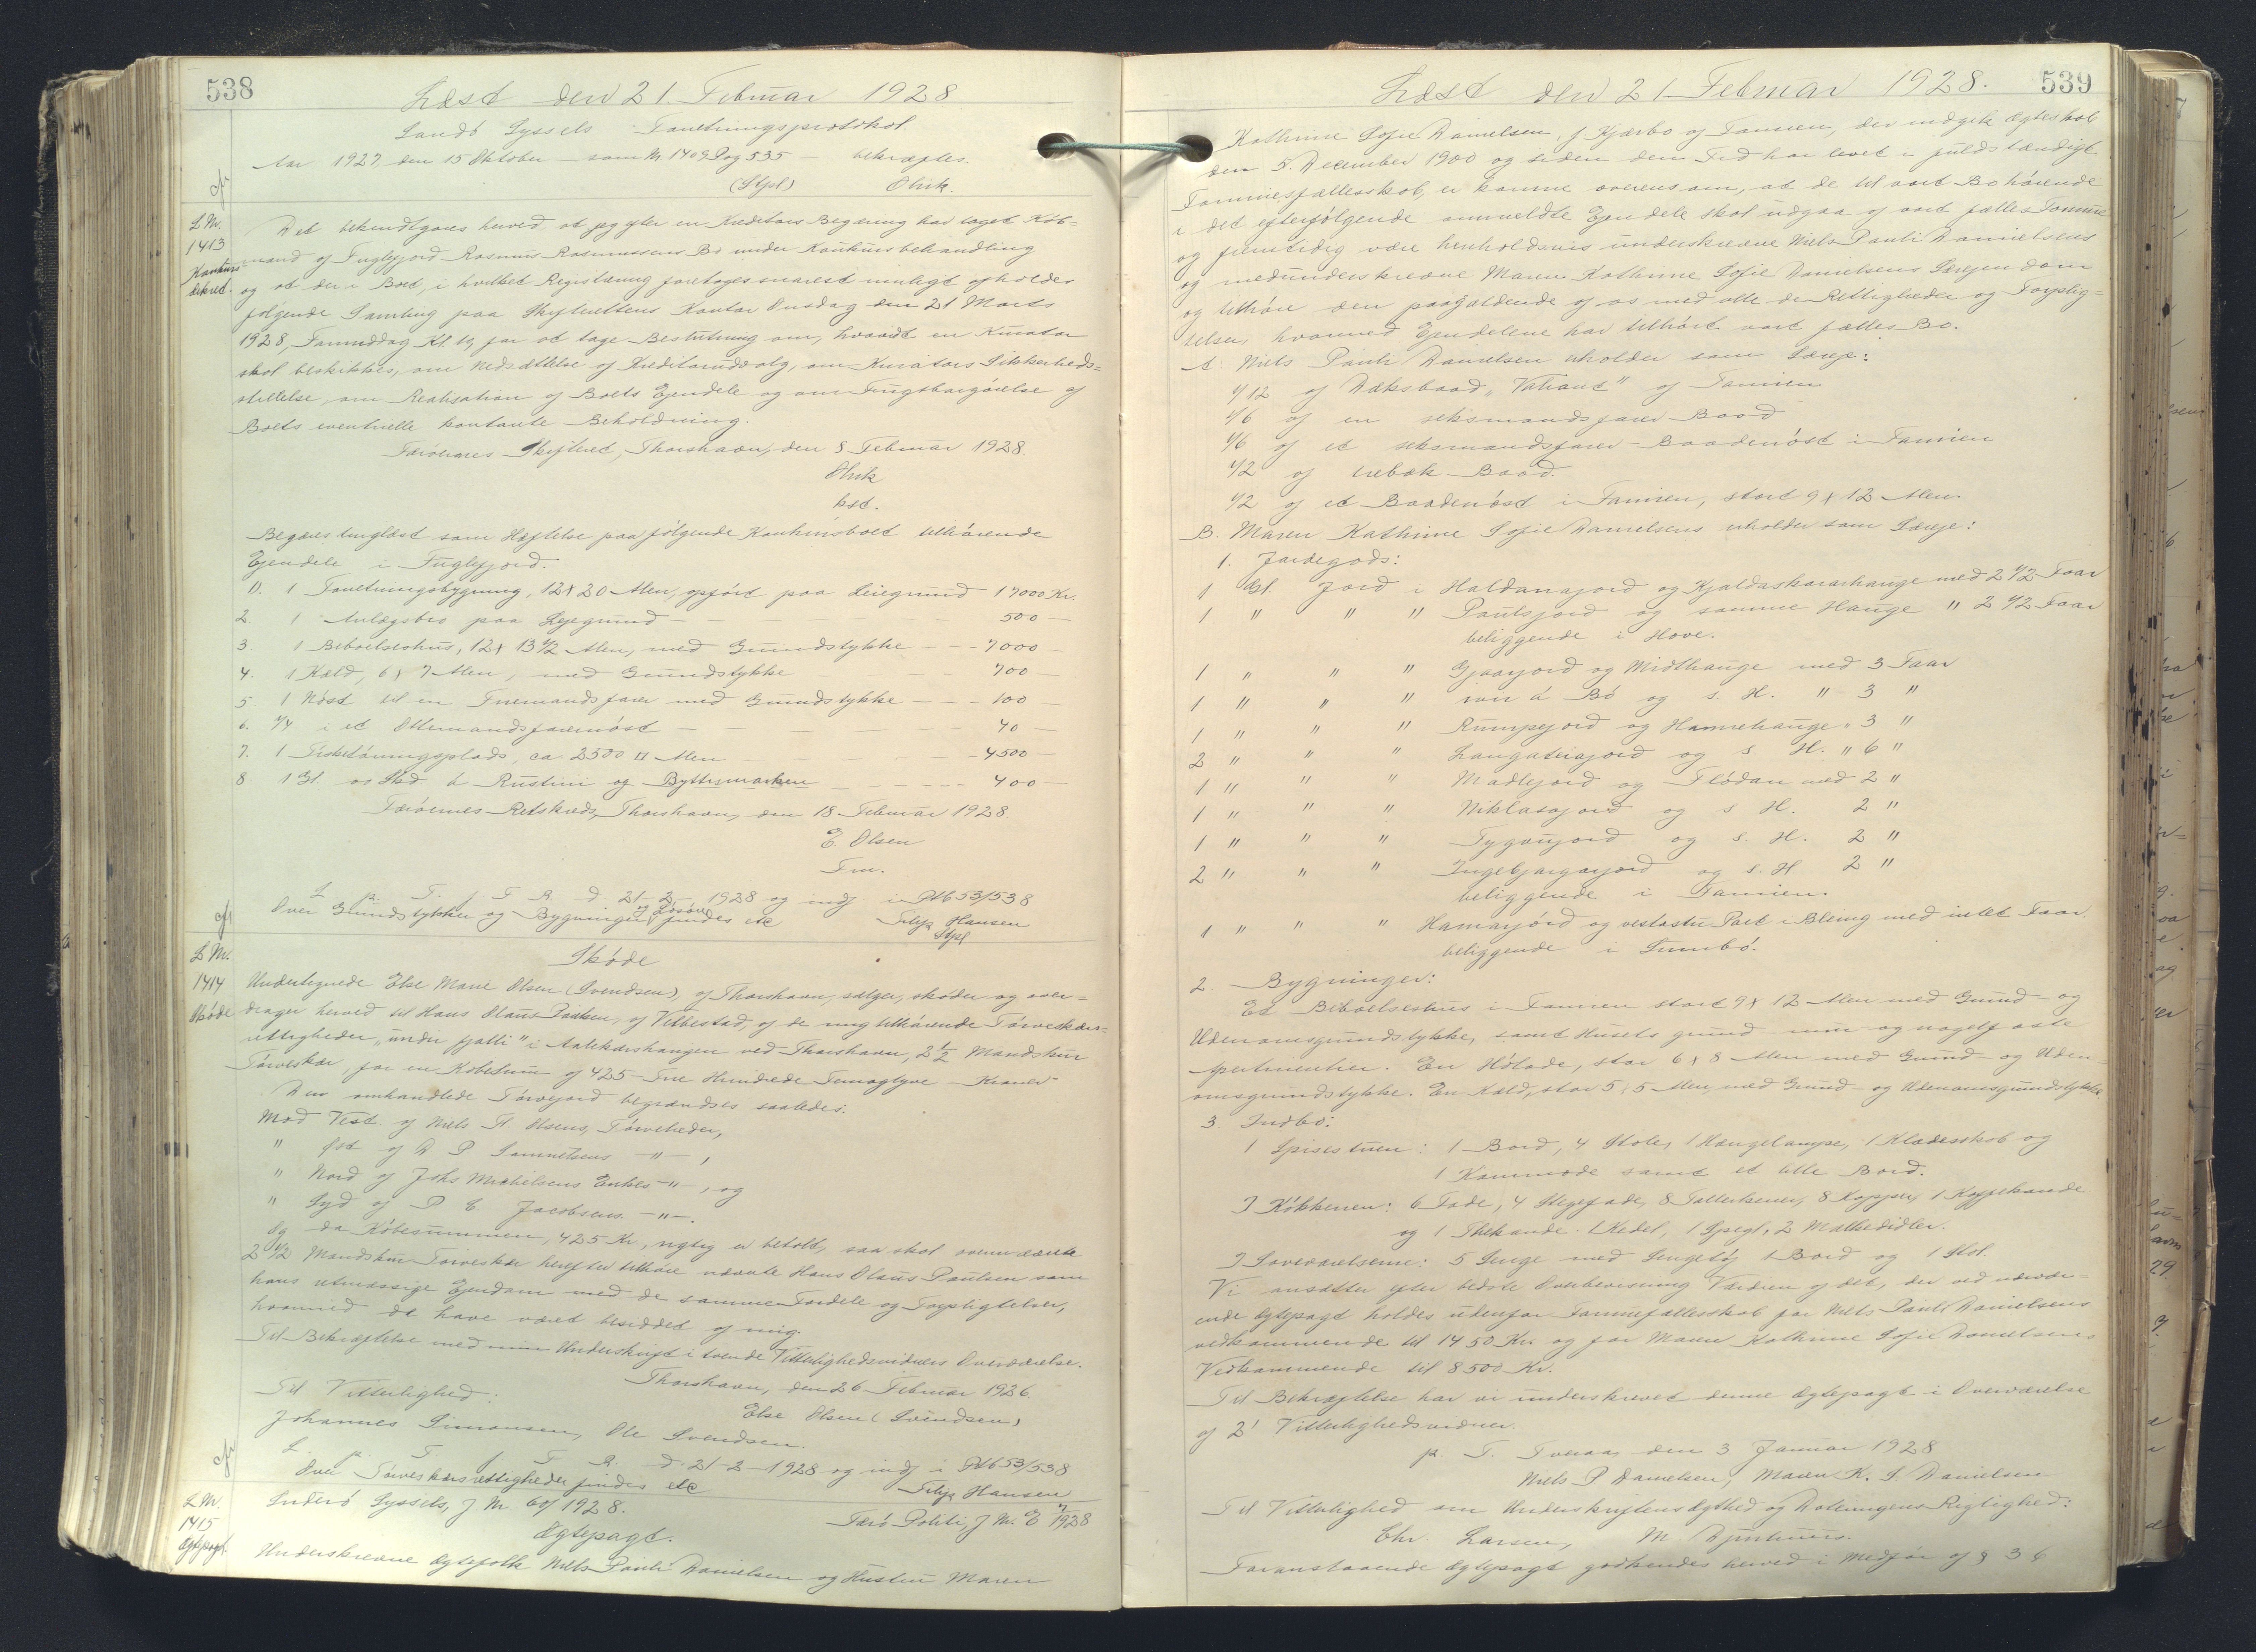 538
Læst den 21 Februar 1928
Sandø Syssels Forretningsprotokol.
Aar 1927, den 15 Oktober som Nr 1409 Pag 535 bekræftes.
(Stpl) Olrik.
L Nr. 1413 Konkurs dekret.
Det bekendtgøres herved at jeg efter en Kreditors Begæring har taget Køb=
mand af Fuglefjord Rasmus Rasmussens Bo under Konkursbehandling
og at der i Boet, i hvilket Registrering foretages snarest muligt afholdes
følgende Samling paa Skifterettens Kontor Onsdag den 21 Marts
1928, Formiddag Kl. 10, for at tage Beslutning om, hvorvidt en Kurator
skal beskikkes, om Nedsættelse af Kreditorudvalg, om Kurators Sikkerheds=
stillelse, om Realisation af Boets Ejendele og om Frugtbargørelse af
Boets eventuelle kontante Beholdning.
Færøernes Skifteret, Thorshavn, den 8 Februar 1928.
Olrik
kst.
Begæres tinglæst som Hæftelse paa følgende Konkursboet tilhørende
Ejendele i Fuglefjord.
1). 1 Forretningsbygning, 12 x 20 Alen, opført paa Leiegrund 17000 Kr.
2. 1 Anlægsbro paa Lejegrund - - - 500 -
3. 1 Beboelseshus, 12 x 13 1/2 Alen, med Grundstykke - - - 7000 -
4. 1 Kæld, 6 x 7 Alen, med Grundstykke - - 700 -
5. 1 Nøst til en Firemandsfarer med Grundstykke - - - 100 -
6. 1/4 i et Ottemandsfarernøst - - - - 40 -
7. 1 Fisketørringsplads, ca. 2500 □ Alen - - 4500 -
8. 1 Gl. 00 Skd á Rustini og Byttismarken - - - - - 400 -
Færøernes Retskreds, Thorshavn, den 18 Februar 1928.
E. Olsen
Fm.
L. p. T. f. F. R. d 21-2-1928 og indf i Ptb 53/538
Over Grundstykker og Bygninger og Løsøre findes etc Hansen
Stpl
L Nr. 1414 Skøde
Skøde
Undertegnede Else Marie Olsen (Svendsen), af Thorshavn, sælger, skøder og over=
drager herved til Hans Olaus Paulsen, af Velbestad, af de mig tilhørende Tørveskærs=
rettigheder "undir fjalli" i ved Thorshavn, 2 1/2 Mandskur
Tørveskær, for en Købesum af 425 Fire Hundrede Femogtyve Kroner.
Den omhandlede Tørvejord begrændses saaledes:
Mod Vest af Niels H. Olsens, Tørveheder,
" Øst af D P Samuelsens -"-,
" Nord af Johs Michelsens Enkes -"-, og
" Syd af P C Jacobsens -"-.
Og da Købesummen, 425 Kr, rigtig er betalt, saa skal ovennævnte
2 1/2 Mandskur Tørveskær herefter tilhøre nævnte Hans Olaus Paulsen som
hans retmæssige Ejendom med de samme Fordele og Forpligtelser,
hvormed de have været besiddet af mig.
Til Bekræftelse med min Underskrift i tvende Vitterlighedsvidners Overværelse.
Thorshavn, den 26 Februar 1926.
Til Vitterlighed: Else Olsen (Svendsen)
Johannes Simonsen, Ole Svendsen.
L. p. T. f. F. R. d. 21-2-1928 og indf i Ptb 53/538
Over Tørveskærsrettigheder findes etc Hansen
L Nr. 1415 Ægtepagt
Suderø Syssels, J Nr 60/1928. Færø Politi, J Nr. E 7/1928
Ægtepagt.
Underskrevne Ægtefolk Niels Pauli Danielsen og Hustru Maren
539
Læst den 21 Februar 1928.
Kathrine Sofie Danielsen, f. Kjærbo af Famien, der indgik Ægteskab
den 5. December 1900 og siden den Tid har levet i fuldstændigt
Formuesfællesskab, er komne overens om, at de til vort Bo hørende
i det efterfølgende anmeldte Ejendele skal udgaa af vort fælles Formue
og fremtidig være henholdsvis underskrevne Niels Pauli Danielsens
og medunderskrevne Maren Kathrine Sofie Danielsens Særejendom
og tilhøre den paagældende af os med alle de Rettigheder og Forplig=
telser, hvormed Ejendelene har tilhørt vort fælles Bo.
A. Niels Pauli Danielsen erholder som Særeje:
1/12 af Dæksbaad "Valiant" af Famien
1/6 af en seksmandsfarer Baad
1/6 af et seksmandsfarer-Baadenøst i Famien
1/2 af trebæk Baad.
1/2 af et Baadenøst i Famien, stort 9 x 12 Alen.
B. Maren Kathrine Sofie Danielsens erholder som Særeje:
1. Jordegods:
1 Gl. Jord i Haldanajord og Kjaldaskararhauge med 2 1/2 Faar
1 " " " Paulsjord og samme Hauge " 2 1/2 Faar
beliggende i Hove.
1 " " " Gjaarjord og Midlhauge med 3 Faar
1 " " " á Bø og s. H. " 3 "
1 " " " Rumpejord og Hamrehauge " 3 "
2 " " " Langateiajord og s H. " 6 "
1 " " " Madlejord og Flødan med 2 "
1 " " " Niklasajord og s H. 2 "
1 " " " Tygarajord og s. H. 2 "
2 " " " Ingebjargarjord og s. H 2 "
beliggende i Famien.
1 " " " Hamarjord og vestastu Part i Bleing med intet Faar.
beliggende i Sumbø.
2. Bygninger:
Et Beboelseshus i Famien stort 9 x 12 Alen med Grund- og
Udenomsgrundstykke, samt Husets grund mur- og nagelfaste
Pertinentier. En Hølade, stor 6 x 8 Alen med Grund- og Uden-
omsgrundstykke. En Kæld, stor 5 x 5 Alen, med Grund- og Udenomsgrundstykke
3. Indbo:
I Spisestuen: 1 Bord, 4 Stole, 1 Hængelampe, 1 Klædesskab og
1 Kommode samt et lille Bord.
I Køkkenen: 6 Fade, 4 Stegefade, 8 Tallerkener, 8 Kopper, 1 Kaffekande
og 1 Thekande. 1 Kedel, 1 Spegl, 2 Malkedidler.
I Soveværelserne: 5 Senge med Sengetøj, 1 Bord og 1 Stol.
Vi ansætter efter bedste Overbevisning Værdien af det, der ved nærvær=
ende Ægtepagt holdes udenfor Formuefællesskab for Niels Pauli Danielsens
vedkommende til 1450 Kr. og for Maren Kathrine Sofie Danielsens
Vedkommende til 8500 Kr.
Til Bekræftelse har vi underskrevet denne Ægtepagt i Overværelse
af 2' Vitterlighedsvidner.
p. T. Tveraa, den 3 Januar 1928
Niels P Danielsen, Maren K. S. Danielsen
Til Vitterlighed om Underskriftens Ægthed og Dateringens Rigtighed:
Chr. Larsen, M. Djurhuus.
Foranstaaende Ægtepagt godkendes herved i Medfør af § 36